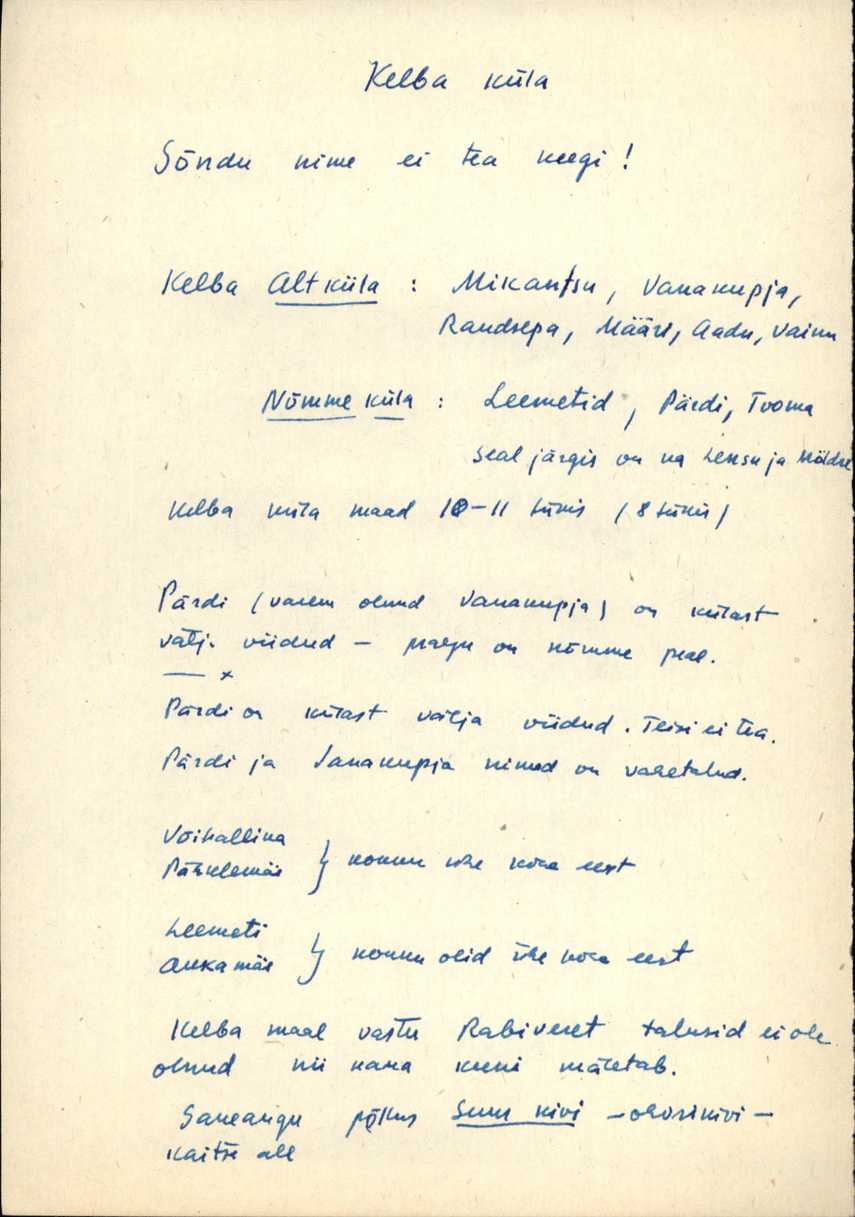 Kelba küla
Sõndu nime ei tea keegi!
Kelba Altküla : Mikantsu, Vanakupja,
Randsepa, Määri, Aadu, Vainu
Nõmme küla : Leemetid, Pärdi, Tooma
seal järgis on ka Lensu ja Möldre
Kelba küla maad 10-11 (8
Pärdi (varem olnud Vanakupja) on külast
välj. viidud - praegu on nõmme peal.
— x
Pärdi on külast välja viidud. Teisi ei tea.
Pärdi ja Vanakupja nimed on vahetatud.
Voihallina
Pähklemäe } kokku ühe koha eest
Leemeti
Aukamäe } kokku olid ühe koha eest
Kelba maal vastu Rabiveret talusid ei ole
olnud nii kaua kuni mäletab.
põllus Suur kivi - ohvrikivi -
kaitse all